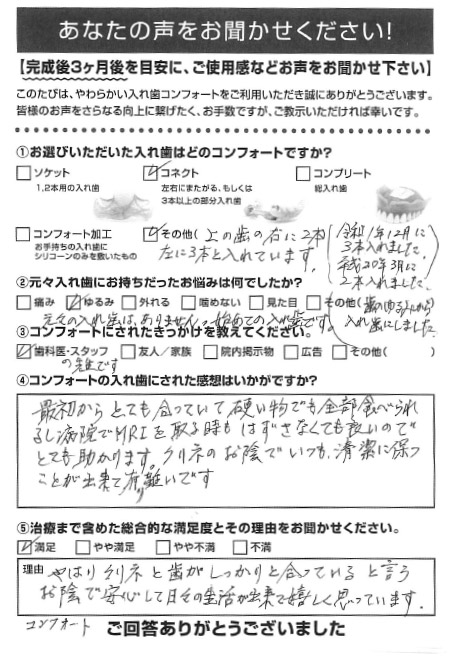 あなたの声をお聞かせください!
【完成後3ヶ月後を目安に、ご使用感などお声をお聞かせ下さい】
このたびは、やわらかい入れ歯コンフォートをご利用いただき誠にありがとうございます。
皆様のお声をさらなる向上に繋げたく、お手数ですが、ご教示いただければ幸いです。
①お選びいただいた入れ歯はどのコンフォートですか?
ソケット
1,2本用の入れ歯
コネクト
左右にまたがる、もしくは
3本以上の部分入れ歯
コンプリート
総入れ歯
コンフォート加工
お手持ちの入れ歯に
シリコーンのみを敷いたもの
その他( 上の歯の右に2本
左に3本と入れています。
令和1年12月に
3本入れました。
平成20年3月に
2本入れました。
②元々入れ歯にお持ちだったお悩みは何でしたか?
痛み ゆるみ 外れる 噛めない 見た目 その他(
元々の入れ歯は、ありません。始めての入れ歯です。
歯のゆるみから
入れ歯にしました
③コンフォートにされたきっかけを教えてください。
歯科医・スタッフ 友人/家族 院内掲示物 広告 その他( )
の先生です
④コンフォートの入れ歯にされた感想はいかがですか?
最初からとても合っていて硬い物でも全部食べられ
るし病院でMRIを取る時もはずさなくても良いので
とても助かります。クリネのお陰でいつも、清潔に保つ
ことが出来て有難いです
⑤治療まで含めた総合的な満足度とその理由をお聞かせください。
満足 やや満足 やや不満 不満
理由 やはりクリネと歯がしっかりと合っていると言う
お陰で安心して日々の生活が出来て嬉しく思っています.
コンフォート
ご回答ありがとうございました